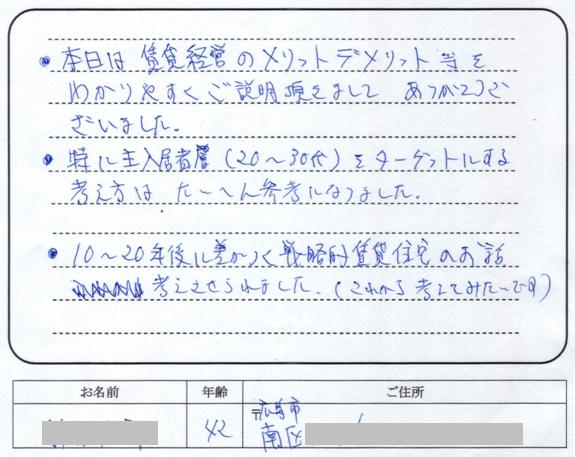 ・本日は賃貸経営のメリットデメリット等を
わかりやすくご説明頂きまして ありがとうご
ざいました。
・特に主入居者層(20〜30代)をターゲットにする
考え方は たいへん参考になりました。
・10〜20年後に差がつく戦略的賃貸住宅のお話
考えさせられました。(これから考えてみたいです)
お名前 年齢 ご住所
42 〒広島市
南区